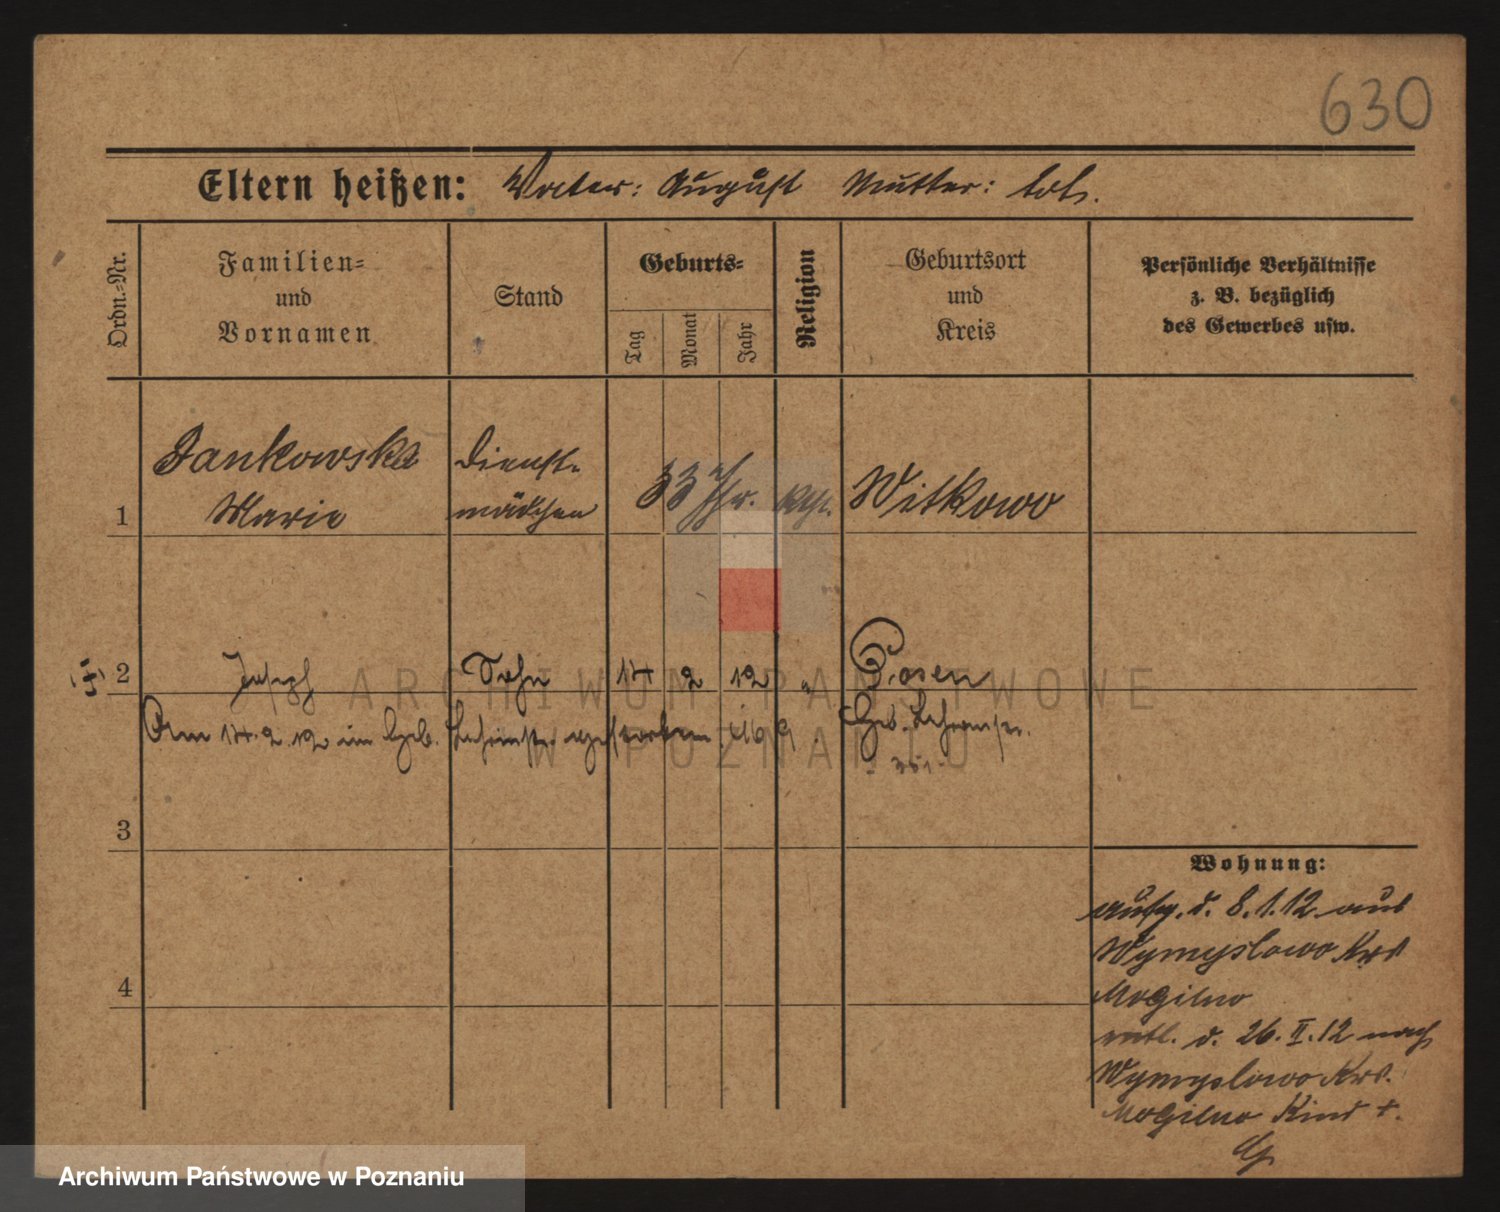 630
Eltern heißen: Vater: August Mutter: leb.
Ordn.-Nr.
Familien-
und
Vornamen
Stand
Geburts-
Tag
Monat
Jahr
Religion
Geburtsort
und
Kreis
Persönliche Verhältnisse
z. B. bezüglich
des Gewerbes usw.
1
Jankowska
Marie
Dienst-
mädchen
33 Jhr.
kth.
Witkowo
2
Joseph
Sohn
14
2
12
"
Posen
Am 14.2.12 im Geb. gestorben
3
4
Wohnung:
aufg. d. 8.1.12 aus
Wymyslowo Krs
Mogilno
entl. d. 26.II.12 nach
Wymyslowo Krs.
Mogilno Kind †.
ARCHIWUM PAŃSTWOWE
W POZNANIU
Archiwum Państwowe w Poznaniu